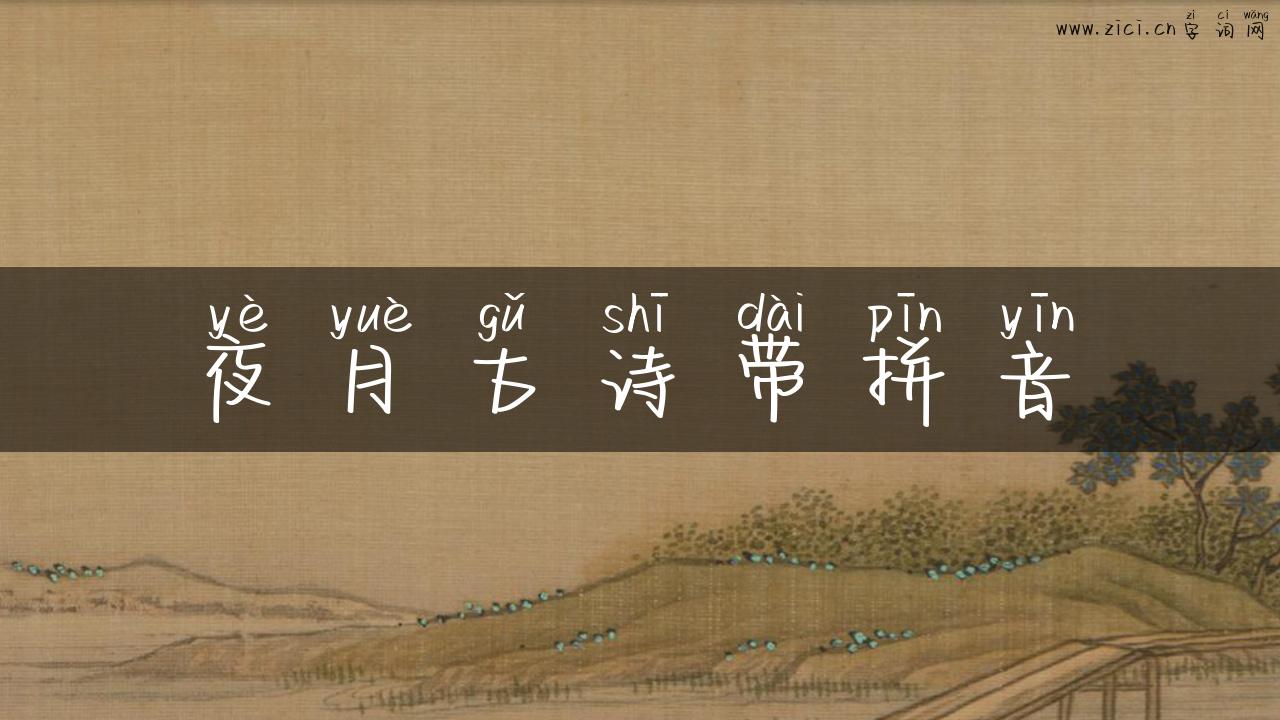 zì cí wǎng
www.zici.cn字词网
yè yuè gǔ shī dài pīn yīn
夜月古诗带拼音